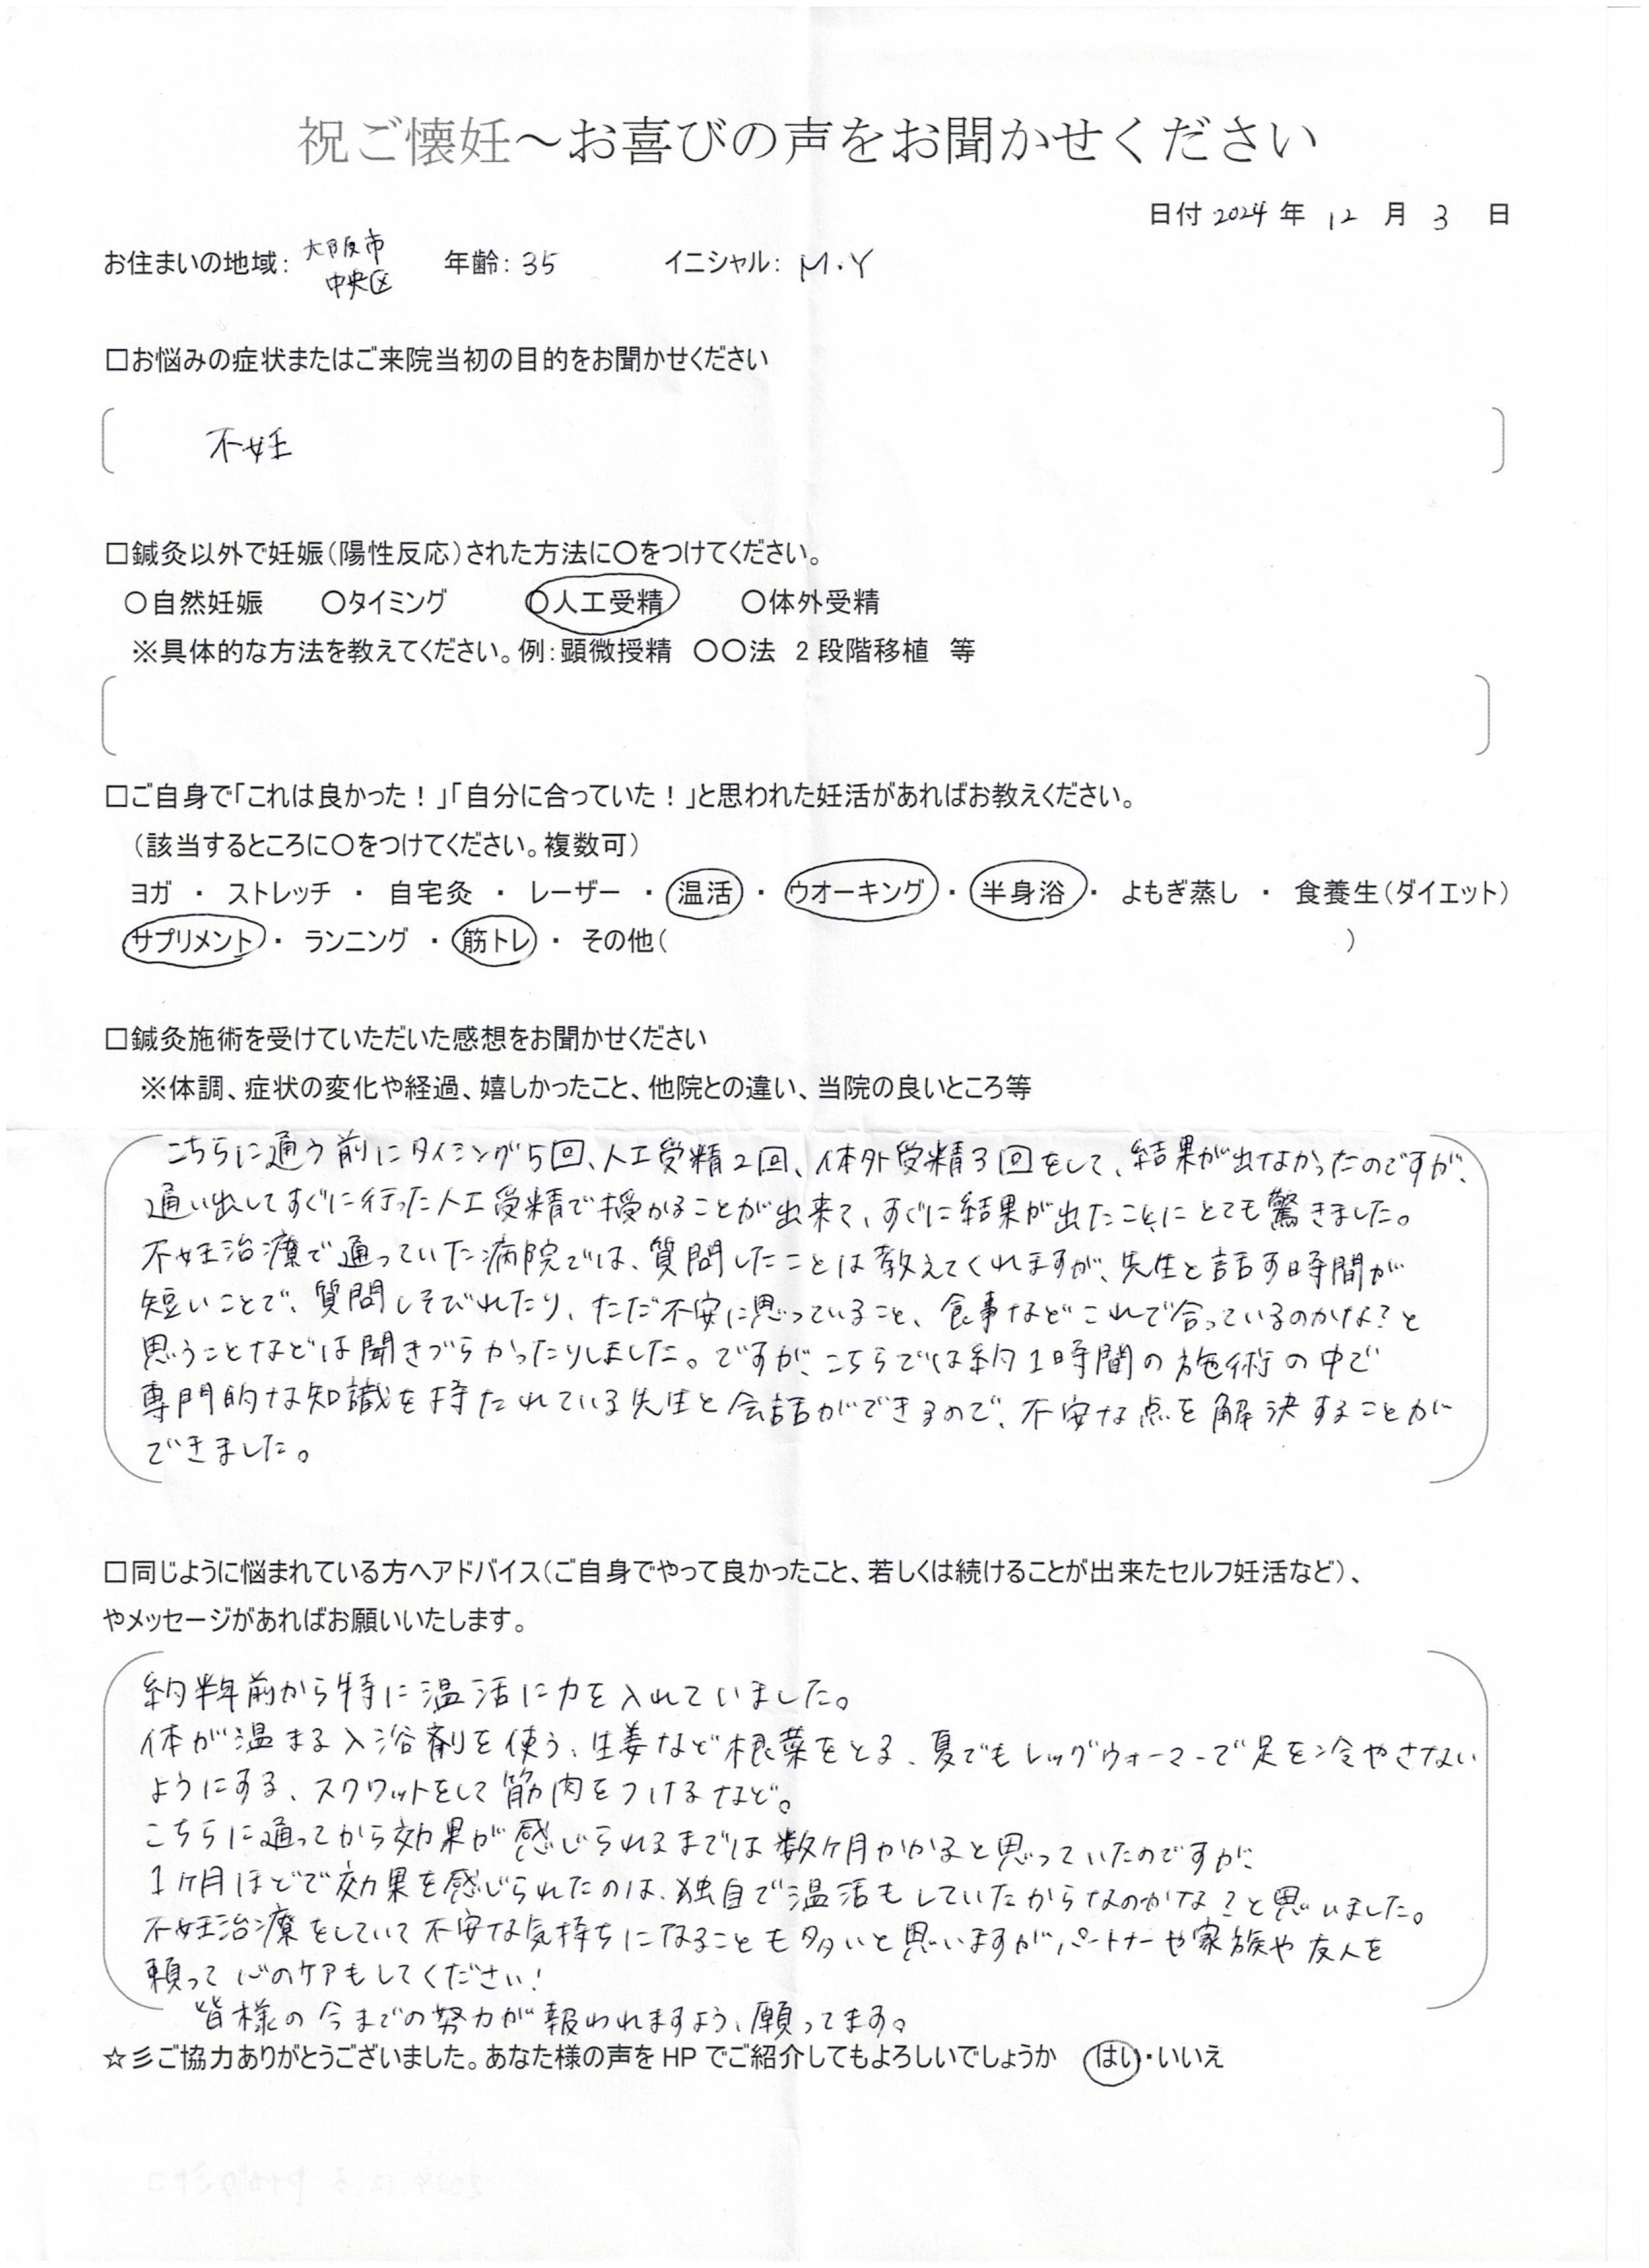 祝ご懐妊～お喜びの声をお聞かせください
日付 2024 年 12 月 3 日
お住まいの地域: 大阪市中央区 年齢: 35 イニシャル: M.Y
□お悩みの症状またはご来院当初の目的をお聞かせください
不妊
□鍼灸以外で妊娠(陽性反応)された方法に〇をつけてください。
〇自然妊娠 〇タイミング 〇人工受精 〇体外受精
※具体的な方法を教えてください。例:顕微授精 〇〇法 2段階移植 等
□ご自身で「これは良かった!」「自分に合っていた!」と思われた妊活があればお教えください。
(該当するところに〇をつけてください。複数可)
ヨガ ・ ストレッチ ・ 自宅灸 ・ レーザー ・ 温活 ・ ウオーキング ・ 半身浴 ・ よもぎ蒸し ・ 食養生(ダイエット)
サプリメント ・ ランニング ・ 筋トレ ・ その他( )
□鍼灸施術を受けていただいた感想をお聞かせください
※体調、症状の変化や経過、嬉しかったこと、他院との違い、当院の良いところ等
こちらに通う前にタイミング5回、人工受精2回、体外受精3回をして、結果が出なかったのですが、
通い出してすぐに行った人工受精で授かることが出来て、すぐに結果が出たことにとても驚きました。
不妊治療で通っていた病院では、質問したことは教えてくれますが、先生と話す時間が
短いことで、質問しそびれたり、ただ不安に思っていること、食事などこれで合っているのかな?と
思うことなどは聞きづらかったりしました。ですが、こちらでは約1時間の施術の中で
専門的な知識を持たれている先生と会話ができるので、不安な点を解決することが
できました。
□同じように悩まれている方へアドバイス(ご自身でやって良かったこと、若しくは続けることが出来たセルフ妊活など)、
やメッセージがあればお願いいたします。
約半年前から特に温活に力を入れていました。
体が温まる入浴剤を使う、生姜など根菜をとる、夏でもレッグウォーマーで足を冷やさない
ようにする、スクワットをして筋肉をつけるなど。
こちらに通ってから効果が感じられるまでは数ヶ月かかると思っていたのですが、
1ヶ月ほどで効果を感じられたのは、独自で温活もしていたからなのかな?と思いました。
不妊治療をしていて不安な気持ちになることも多いと思いますが、パートナーや家族や友人を
頼って心のケアもしてください!
皆様の今までの努力が報われますよう、願ってます。
☆彡ご協力ありがとうございました。あなた様の声をHPでご紹介してもよろしいでしょうか はい・いいえ